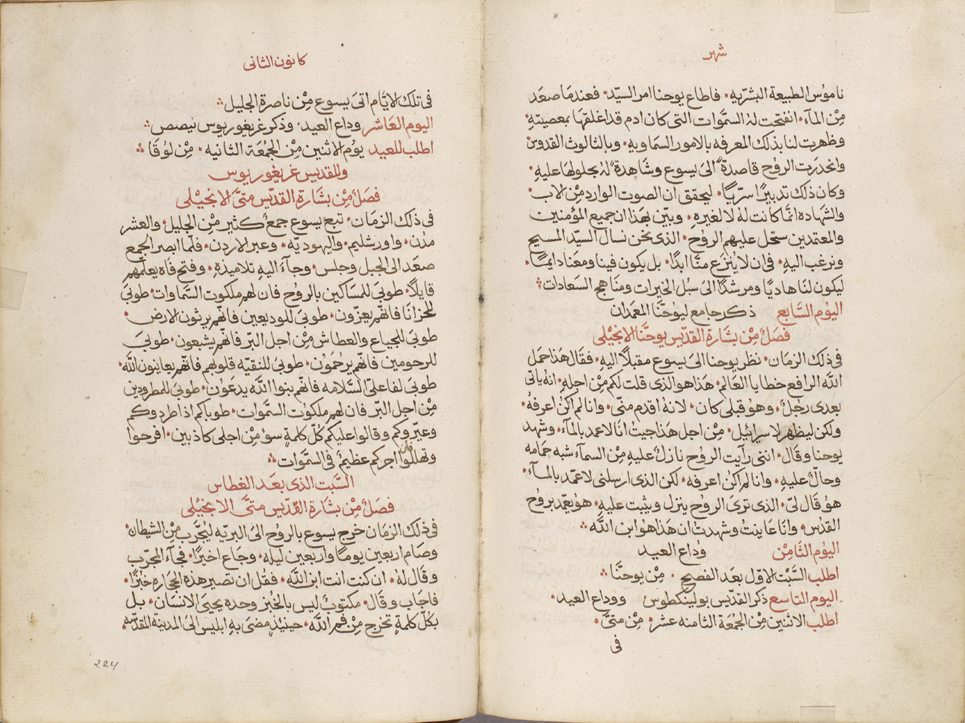 شهر
ناموس الطبيعة البشريه • فاطاع يوحنا امر السيّد • فعندما صعد
من المآء • انفتحت له السموات التى كان ادم قد اغلقها بمعصيته •
وظهرت لنا بذلك المعرفه بالامور السماويه • وبالثالوث القدوس
وانحدرت الروح قاصدة الى يسوع وشاهدة له بحلولها عليه •
وكان ذلك تدبيرًا سريًّا • ليحقق ان الصوت الوارد من الاب •
والشهاده انما كانت له لا لغيره • وبيّن بهذا ان جميع المؤمنين
والمعتمدين ستحل عليهم الروح • الذى نحن نسال السيّد المسيح
ونرغب اليه • فى ان لا ينتزع منّا ابدًا • بل يكون فينا ومعنا دايمًا •
ليكون لنا هاديًا ومرشدًا الى سبل الخيرات ومناهج السعادات ܀
اليوم السّابع ذكر جامع ليوحنّا المعمدان
فصل من بشارة القديس يوحنّا الانجيلى
فى ذلك الزمان • نظر يوحنا الى يسوع مقبلًا اليه • فقال هذا حمل
الله الرافع خطايا العالم • هذا هو الذى قلت لكم من اجله • انه ياتى
بعدى رجل • وهو قبلى كان • لانه اقدم منّى • وانا لم اكن اعرفه •
ولكن ليظهر لاسرائيل • من اجل هذا جيت انا لاعمد بالمآء • وشهد
يوحنا وقال • اننى رايت الروح نازل عليه من السمآء • شبه حمامه
وحالّ عليه • وانا لم اكن اعرفه • لكن الذى ارسلنى لاعمّد بالمآء •
هو قال لى • الذى ترى الروح ينزل ويثبت عليه • هو يعمّد بروح
القدس • وانا عاينت وشهدت ان هذا هو ابن الله ܀
اليوم الثامن وداع العيد
اطلب السّبت الاول بعد الفصح • من يوحنّا ܀
اليوم التاسع ذكر القديس بوليئكطوس • ووداع العيد •
اطلب الاثنين من الجمعة الثامنه عشر • من متى •
فى
كانون الثانى
فى تلك الايّام اتى يسوع من ناصرة الجليل ܀
اليوم العاشر وداع العيد • وذكر غريغوريوس نيصص ܀
اطلب للعيد يوم الاثنين من الجمعة الثانيه • من لوقا ܀
وللقديس غريغوريوس
فصل من بشارة القديس متى الانجيلى
فى ذلك الزمان • تبع يسوع جمع كثير من الجليل • والعشر
مدن • واورشليم • واليهوديّه • وعبر الاردن • فلما ابصر الجمع
صعد الى الجبل وجلس • وجآء اليه تلاميذه • وفتح فاه يعلمهم
قايلًا • طوبى للمساكين بالروح فان لهم ملكوت السماوات • طوبى
للحزانا فانهم يعزّون • طوبى للوديعين فانهم يرثون الارض •
طوبى للجياع والعطاش من اجل البر فانهم يشبعون • طوبى
للرحومين فانهم يرحمون • طوبى للنقيّه قلوبهم فانهم يعاينون الله •
طوبى لفاعلى السّلامه فانهم بنوا الله يدعون • طوبى للمطرودين
من اجل البر فان لهم ملكوت السّموات • طوباكم اذا طردوكم
وعيّروكم وقالوا عليكم كلّ كلمة سوء من اجلى كاذبين • افرحوا
وتهللوا فان اجركم عظيم فى السّموات ܀
السّبت الذى بعد الغطاس
فصل من بشارة القديس متى الانجيلى
فى ذلك الزمان خرج يسوع بالروح الى البريه ليجرّب من الشيطان •
وصام اربعين يومًا واربعين ليله • وجاع اخيرًا • فجآء المجرّب
وقال له • ان كنت انت ابن الله • فقل ان تصير هذه الحجاره خبزًا •
فاجاب وقال • مكتوب ليس بالخبز وحده يحيى الانسان • بل
بكلّ كلمة تخرج من فم الله • حينيذ مضى به ابليس الى المدينة المقدسه
224